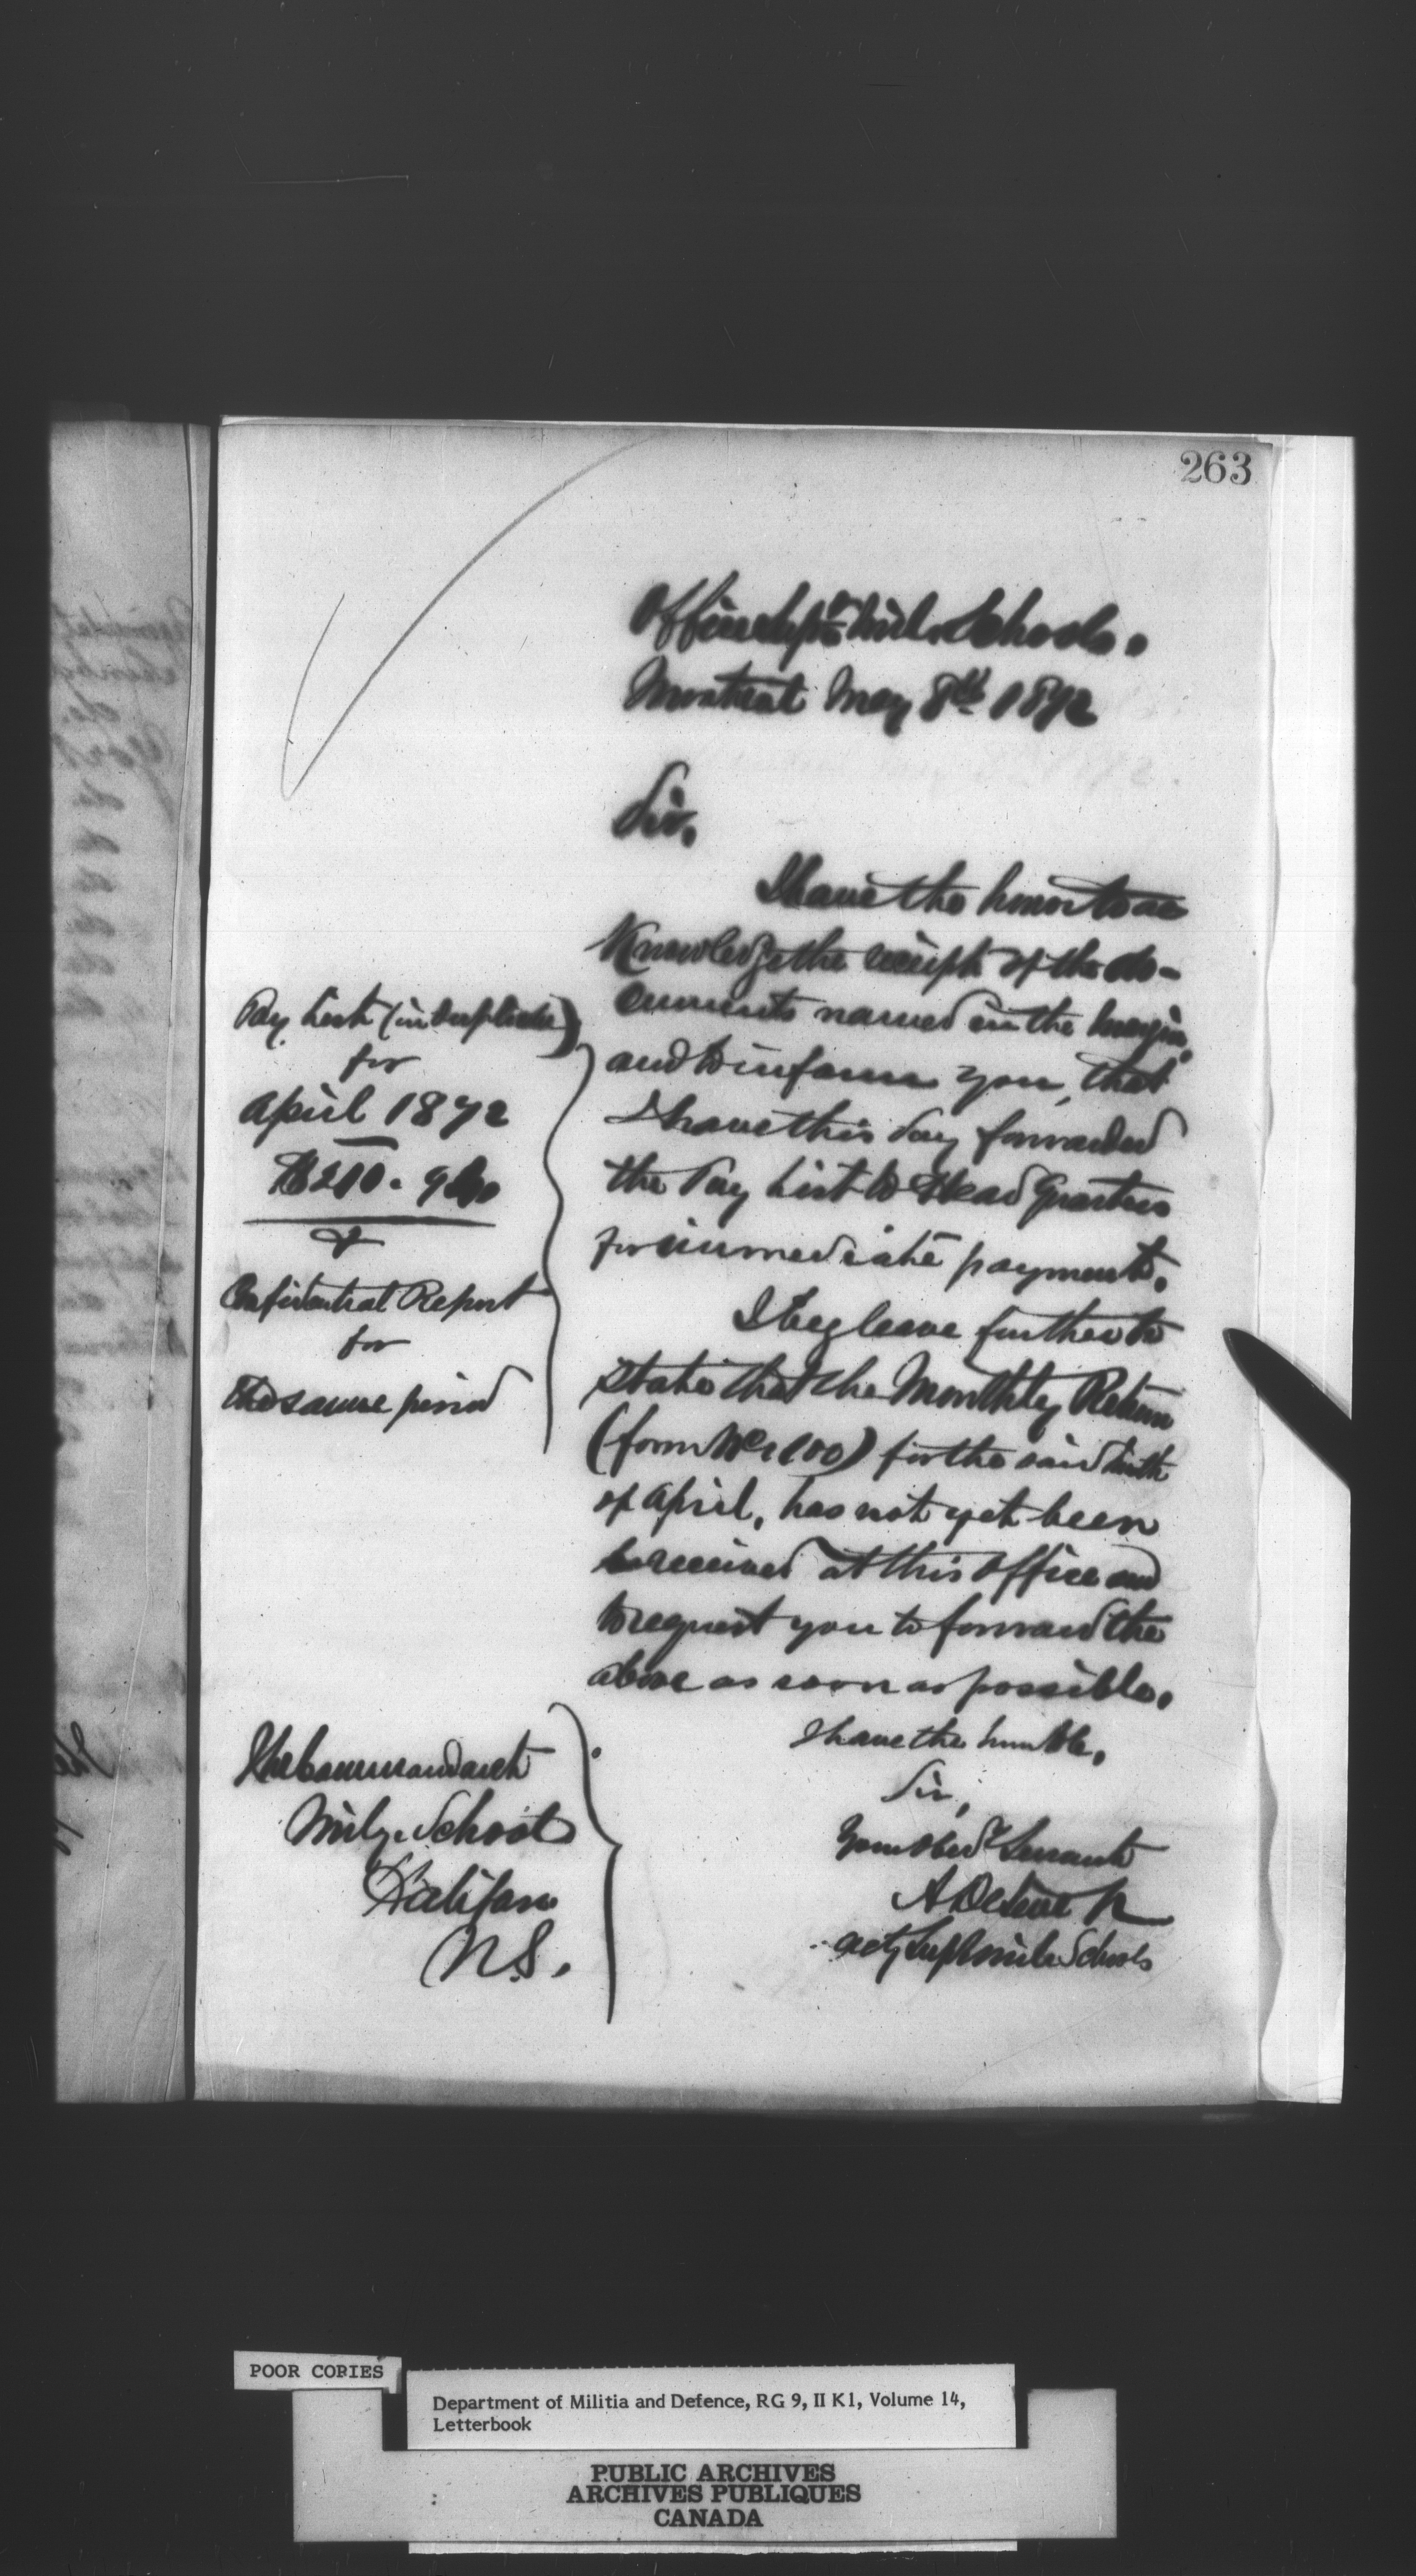 263
Office Supt Mil. Schools.
Montreal May 8th 1872
Sir,
I have the honor to ac
Knowledge the receipt of the do-
cuments named in the margin,
and to inform you, that
I have this day forwarded
the Pay List to Head Quarters
for immediate payment.
I beg leave further to
state that the Monthly Return
(form No 100) for the said
of April, has not yet been
received at this office and
to request you to forward the
above as soon as possible.
Pay List (in duplicate)
for
April 1872
&
Confidential Report
for
the same period
I have the honor to be,
Sir,
Your Obed Servant
acty Supt Mil Schools
The Commandant
Mily. School
Halifax
N.S.
POOR COPIES
Department of Militia and Defence, RG 9, II K1, Volume 14,
Letterbook
PUBLIC ARCHIVES
ARCHIVES PUBLIQUES
CANADA